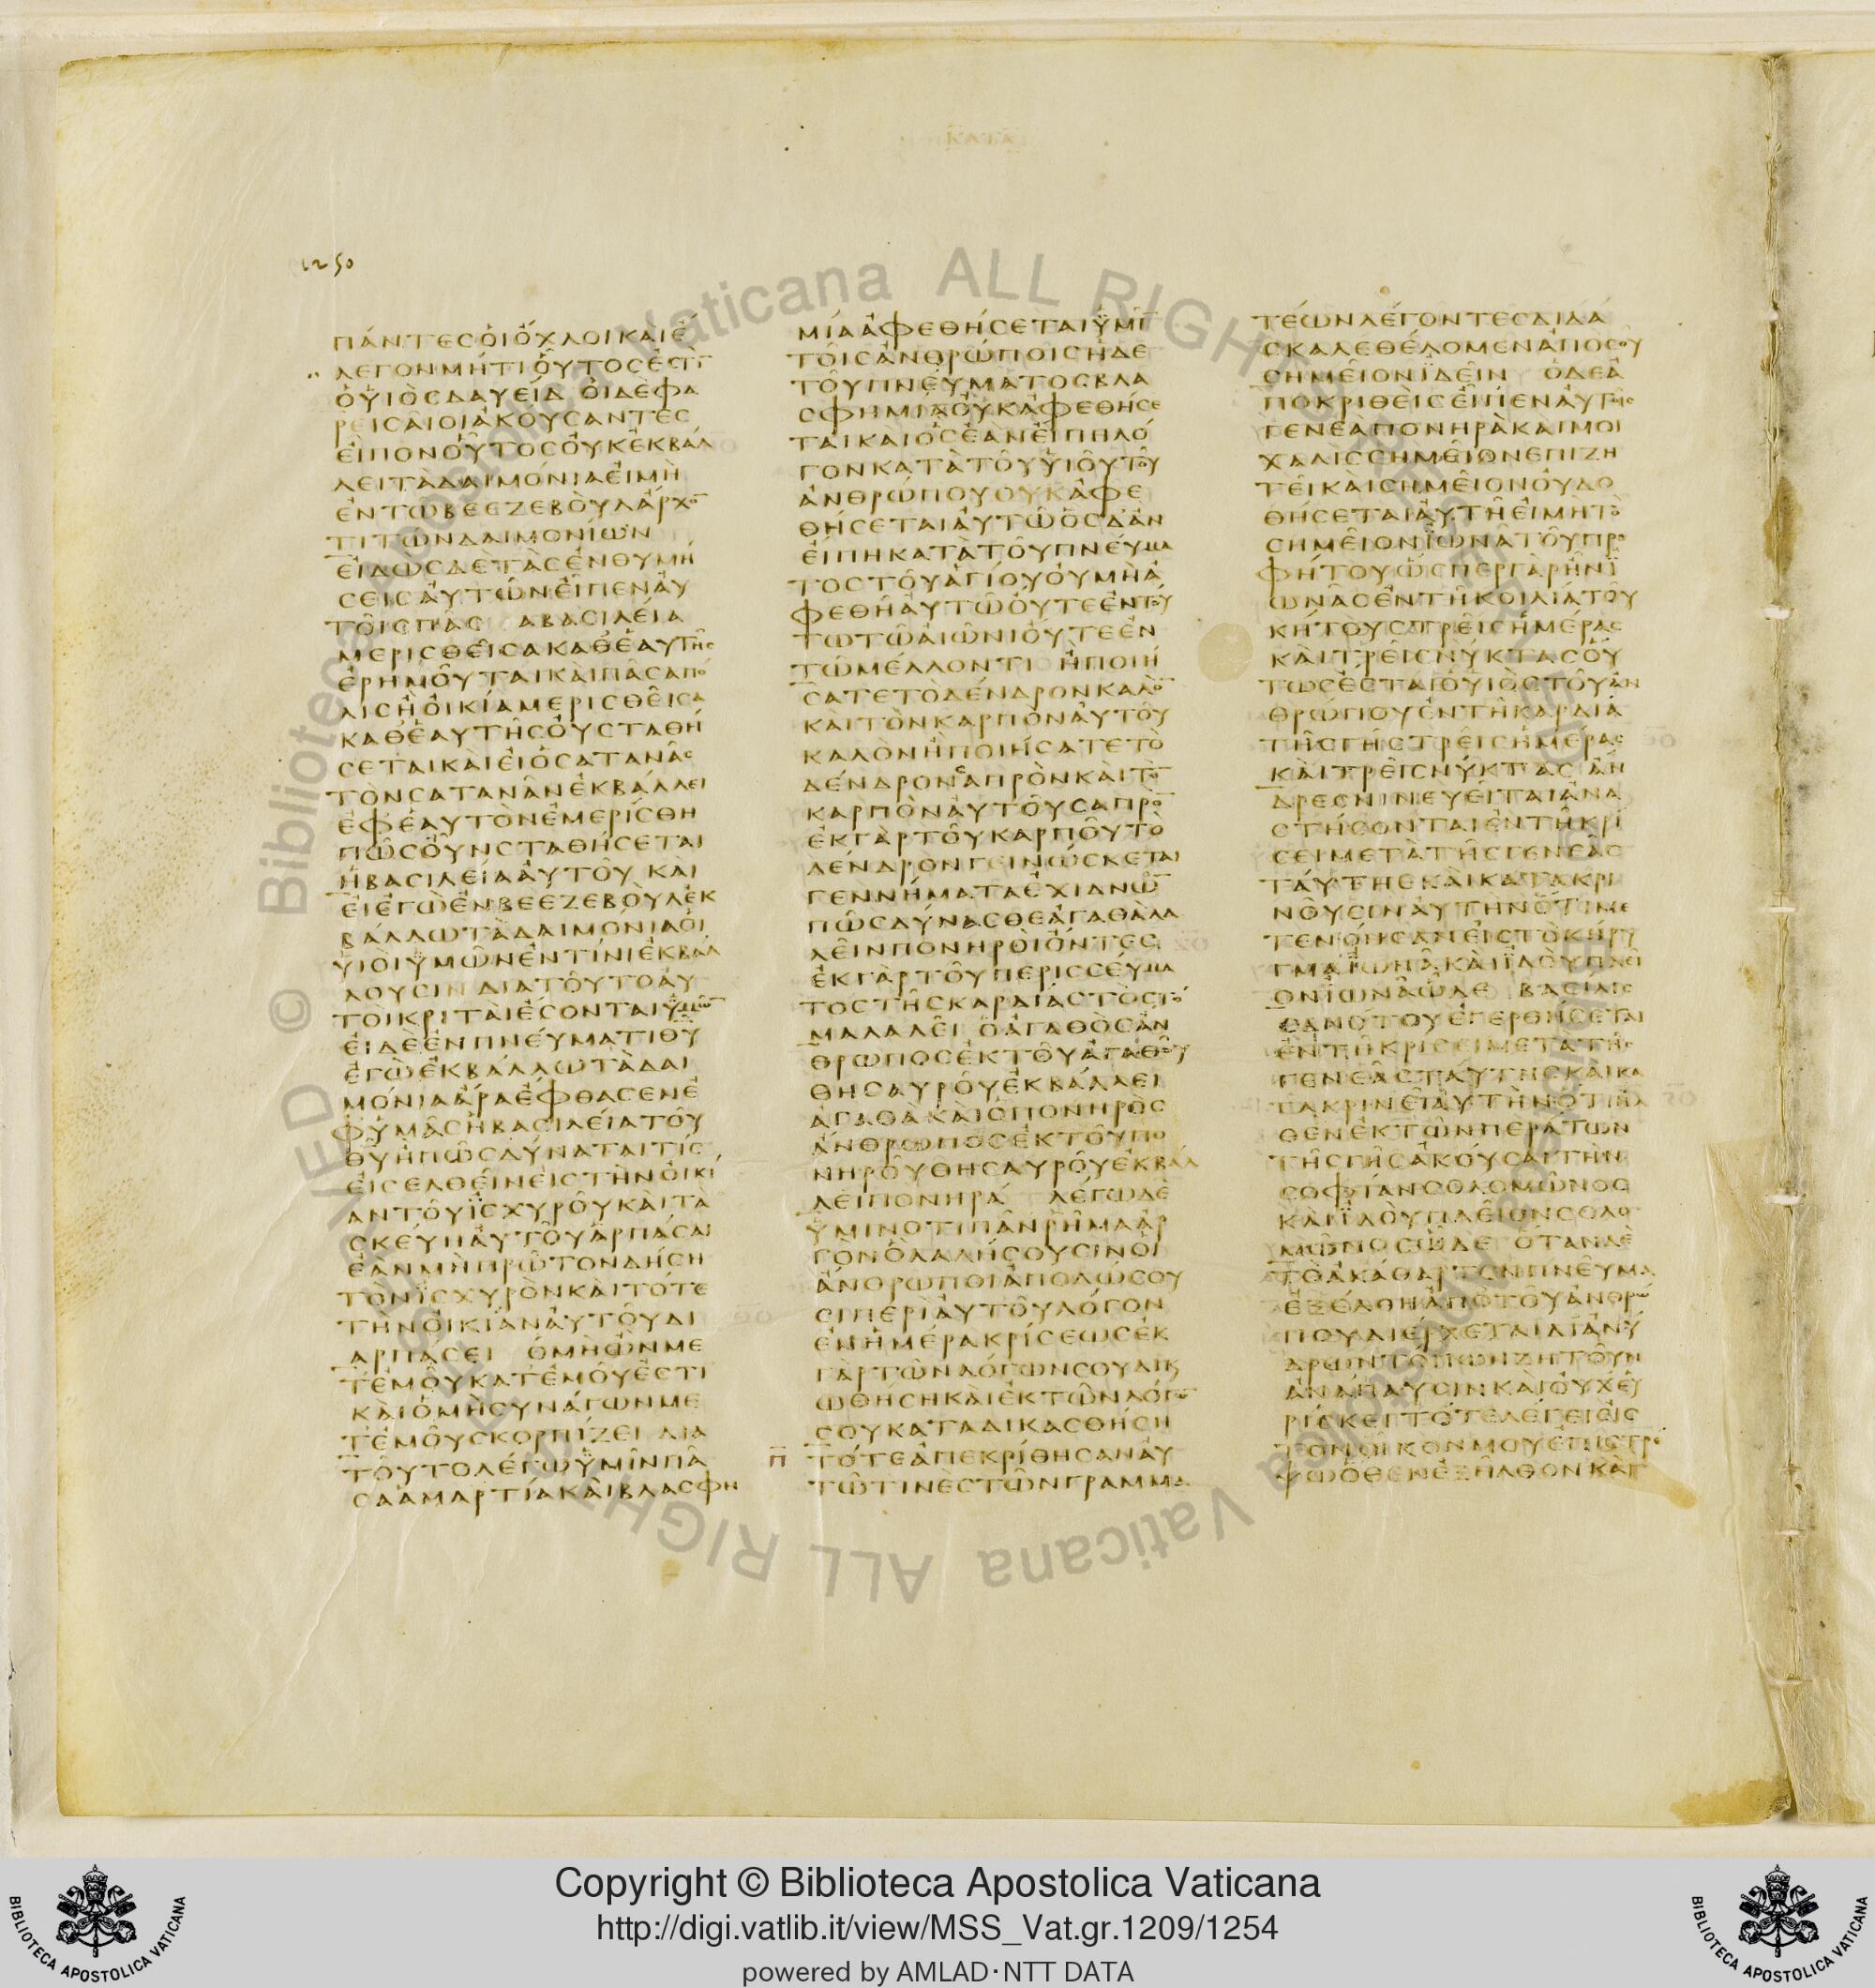 ΚΑΤΑ
1250
ΠΑΝΤΕϹΟΙΟΧΛΟΙΚΑΙΕ
ΛΕΓΟΝΜΗΤΙΟΥΤΟϹΕϹΤΙ̅
ΟΥΙΟϹΔΑΥΕΙΔ ΟΙΔΕΦΑ
ΡΕΙϹΑΙΟΙΑΚΟΥϹΑΝΤΕϹ
ΕΙΠΟΝΟΥΤΟϹΟΥΚΕΚΒΑΛ
ΛΕΙΤΑΔΑΙΜΟΝΙΑΕΙΜΗ
ΕΝΤΩΒΕΕΖΕΒΟΥΛΑΡΧΟ̅
ΤΙΤΩΝΔΑΙΜΟΝΙΩΝ
ΕΙΔΩϹΔΕΤΑϹΕΝΘΥΜΗ
ϹΕΙϹΑΥΤΩΝΕΙΠΕΝΑΥ
ΤΟΙϹΠΑϹΑΒΑϹΙΛΕΙΑ
ΜΕΡΙϹΘΕΙϹΑΚΑΘΕΑΥΤΗϹ
ΕΡΗΜΟΥΤΑΙΚΑΙΠΑϹΑΠΟ
ΛΙϹΗΟΙΚΙΑΜΕΡΙϹΘΕΙϹΑ
ΚΑΘΕΑΥΤΗϹΟΥϹΤΑΘΗ
ϹΕΤΑΙΚΑΙΕΙΟϹΑΤΑΝΑϹ
ΤΟΝϹΑΤΑΝΑΝΕΚΒΑΛΛΕΙ
ΕΦΕΑΥΤΟΝΕΜΕΡΙϹΘΗ
ΠΩϹΟΥΝϹΤΑΘΗϹΕΤΑΙ
ΗΒΑϹΙΛΕΙΑΑΥΤΟΥ ΚΑΙ
ΕΙΕΓΩΕΝΒΕΕΖΕΒΟΥΛΕΚ
ΒΑΛΛΩΤΑΔΑΙΜΟΝΙΑΟΙ
ΥΙΟΙΥΜΩΝΕΝΤΙΝΙΕΚΒΑΛ
ΛΟΥϹΙΝ ΔΙΑΤΟΥΤΟΑΥ
ΤΟΙΚΡΙΤΑΙΕϹΟΝΤΑΙΥΜΩ̅
ΕΙΔΕΕΝΠΝΕΥΜΑΤΙΘΥ̅
ΕΓΩΕΚΒΑΛΛΩΤΑΔΑΙ
ΜΟΝΙΑΑΡΑΕΦΘΑϹΕΝΕ
ΦΥΜΑϹΗΒΑϹΙΛΕΙΑΤΟΥ
ΘΥ̅ΗΠΩϹΔΥΝΑΤΑΙΤΙϹ
ΕΙϹΕΛΘΕΙΝΕΙϹΤΗΝΟΙΚΙ
ΑΝΤΟΥΪϹΧΥΡΟΥΚΑΙΤΑ
ϹΚΕΥΗΑΥΤΟΥΑΡΠΑϹΑΙ
ΕΑΝΜΗΠΡΩΤΟΝΔΗϹΗ
ΤΟΝΪϹΧΥΡΟΝΚΑΙΤΟΤΕ
ΤΗΝΟΙΚΙΑΝΑΥΤΟΥΔΙ
ΑΡΠΑϹΕΙ ΟΜΗΩΝΜΕ
ΤΕΜΟΥΚΑΤΕΜΟΥΕϹΤΙ
ΚΑΙΟΜΗϹΥΝΑΓΩΝΜΕ
ΤΕΜΟΥϹΚΟΡΠΙΖΕΙ ΔΙΑ
ΤΟΥΤΟΛΕΓΩΥΜΙΝΠΑ
ϹΑΑΜΑΡΤΙΑΚΑΙΒΛΑϹΦΗ
ΜΙΑΑΦΕΘΗϹΕΤΑΙΥΜΙ̅
ΤΟΙϹΑΝΘΡΩΠΟΙϹΗΔΕ
ΤΟΥΠΝΕΥΜΑΤΟϹΒΛΑ
ϹΦΗΜΙΑΟΥΚΑΦΕΘΗϹΕ
ΤΑΙΚΑΙΟϹΕΑΝΕΙΠΗΛΟ
ΓΟΝΚΑΤΑΤΟΥΥΙΟΥΤΟΥ
ΑΝΘΡΩΠΟΥΟΥΚΑΦΕ
ΘΗϹΕΤΑΙΑΥΤΩΟϹΔΑΝ
ΕΙΠΗΚΑΤΑΤΟΥΠΝΕΥΜΑ
ΤΟϹΤΟΥΑΓΙΟΥΟΥΜΗΑ
ΦΕΘΗΑΥΤΩΟΥΤΕΕΝΤΟΥ
ΤΩΤΩΑΙΩΝΙΟΥΤΕΕΝ
ΤΩΜΕΛΛΟΝΤΙ ΗΠΟΙΗ
ϹΑΤΕΤΟΔΕΝΔΡΟΝΚΑΛΟ̅
ΚΑΙΤΟΝΚΑΡΠΟΝΑΥΤΟΥ
ΚΑΛΟΝΗΠΟΙΗϹΑΤΕΤΟ
ΔΕΝΔΡΟΝϹΑΠΡΟΝΚΑΙΤΟ̅
ΚΑΡΠΟΝΑΥΤΟΥϹΑΠΡΟ̅
ΕΚΓΑΡΤΟΥΚΑΡΠΟΥΤΟ
ΔΕΝΔΡΟΝΓΕΙΝΩϹΚΕΤΑΙ
ΓΕΝΝΗΜΑΤΑΕΧΙΔΝΩ̅
ΠΩϹΔΥΝΑϹΘΕΑΓΑΘΑΛΑ
ΛΕΙΝΠΟΝΗΡΟΙΟΝΤΕϹ
ΕΚΓΑΡΤΟΥΠΕΡΙϹϹΕΥΜΑ
ΤΟϹΤΗϹΚΑΡΔΙΑϹΤΟϹΤΟ
ΜΑΛΑΛΕΙ ΟΑΓΑΘΟϹΑΝ
ΘΡΩΠΟϹΕΚΤΟΥΑΓΑΘΟΥ
ΘΗϹΑΥΡΟΥΕΚΒΑΛΛΕΙ
ΑΓΑΘΑΚΑΙΟΠΟΝΗΡΟϹ
ΑΝΘΡΩΠΟϹΕΚΤΟΥΠΟ
ΝΗΡΟΥΘΗϹΑΥΡΟΥΕΚΒΑΛ
ΛΕΙΠΟΝΗΡΑ ΛΕΓΩΔΕ
ΥΜΙΝΟΤΙΠΑΝΡΗΜΑΑΡ
ΓΟΝΟΛΑΛΗϹΟΥϹΙΝΟΙ
ΑΝΘΡΩΠΟΙΑΠΟΔΩϹΟΥ
ϹΙΠΕΡΙΑΥΤΟΥΛΟΓΟΝ
ΕΝΗΜΕΡΑΚΡΙϹΕΩϹΕΚ
ΓΑΡΤΩΝΛΟΓΩΝϹΟΥΔΙΚΑΙ
ΩΘΗϹΗΚΑΙΕΚΤΩΝΛΟΓΩ̅
ϹΟΥΚΑΤΑΔΙΚΑϹΘΗϹΗ
Π̅ ΤΟΤΕΑΠΕΚΡΙΘΗϹΑΝΑΥ
ΤΩΤΙΝΕϹΤΩΝΓΡΑΜΜΑ
ΤΕΩΝΛΕΓΟΝΤΕϹΔΙΔΑ
ϹΚΑΛΕΘΕΛΟΜΕΝΑΠΟϹΟΥ
ϹΗΜΕΙΟΝΪΔΕΙΝ ΟΔΕΑ
ΠΟΚΡΙΘΕΙϹΕΙΠΕΝΑΥΤΟΙϹ
ΓΕΝΕΑΠΟΝΗΡΑΚΑΙΜΟΙ
ΧΑΛΙϹϹΗΜΕΙΟΝΕΠΙΖΗ
ΤΕΙΚΑΙϹΗΜΕΙΟΝΟΥΔΟ
ΘΗϹΕΤΑΙΑΥΤΗΕΙΜΗΤΟ
ϹΗΜΕΙΟΝΪΩΝΑΤΟΥΠΡΟ
ΦΗΤΟΥΩϹΠΕΡΓΑΡΗΝΪ
ΩΝΑϹΕΝΤΗΚΟΙΛΙΑΤΟΥ
ΚΗΤΟΥϹΤΡΕΙϹΗΜΕΡΑϹ
ΚΑΙΤΡΕΙϹΝΥΚΤΑϹΟΥ
ΤΩϹΕϹΤΑΙΟΥΙΟϹΤΟΥΑΝ
ΘΡΩΠΟΥΕΝΤΗΚΑΡΔΙΑ
ΤΗϹΓΗϹΤΡΕΙϹΗΜΕΡΑϹ
ΚΑΙΤΡΕΙϹΝΥΚΤΑϹ ΑΝ
ΔΡΕϹΝΙΝΕΥΕΙΤΑΙΑΝΑ
ϹΤΗϹΟΝΤΑΙΕΝΤΗΚΡΙ
ϹΕΙΜΕΤΑΤΗϹΓΕΝΕΑϹ
ΤΑΥΤΗϹΚΑΙΚΑΤΑΚΡΙ
ΝΟΥϹΙΝΑΥΤΗΝΟΤΙΜΕ
ΤΕΝΟΗϹΑΝΕΙϹΤΟΚΗΡΥ
ΓΜΑΪΩΝΑΚΑΙΪΔΟΥΠΛΕΙ
ΟΝΪΩΝΑΩΔΕ ΒΑϹΙΛΙϹ
ϹΑΝΟΤΟΥΕΓΕΡΘΗϹΕΤΑΙ
ΕΝΤΗΚΡΙϹΕΙΜΕΤΑΤΗϹ
ΓΕΝΕΑϹΤΑΥΤΗϹΚΑΙΚΑ
ΤΑΚΡΙΝΕΙΑΥΤΗΝΟΤΙΗΛ
ΘΕΝΕΚΤΩΝΠΕΡΑΤΩΝ
ΤΗϹΓΗϹΑΚΟΥϹΑΙΤΗΝ
ϹΟΦΙΑΝϹΟΛΟΜΩΝΟϹ
ΚΑΙΪΔΟΥΠΛΕΙΟΝϹΟΛΟ
ΜΩΝΟϹΩΔΕ ΟΤΑΝΔΕ
ΤΟΑΚΑΘΑΡΤΟΝΠΝΕΥΜΑ
ΕΞΕΛΘΗΑΠΟΤΟΥΑΝΘΡΩ
ΠΟΥΔΙΕΡΧΕΤΑΙΔΙΑΝΥ
ΔΡΩΝΤΟΠΩΝΖΗΤΟΥΝ
ΑΝΑΠΑΥϹΙΝΚΑΙΟΥΧΕΥ
ΡΙϹΚΕΙΤΟΤΕΛΕΓΕΙΕΙϹ
ΤΟΝΟΙΚΟΝΜΟΥΕΠΙϹΤΡΕ
ΨΩΟΘΕΝΕΞΗΛΘΟΝΚΑΙ
© Biblioteca Apostolica Vaticana ALL RIGHTS RESERVED
Copyright © Biblioteca Apostolica Vaticana
http://digi.vatlib.it/view/MSS_Vat.gr.1209/1254
powered by AMLAD·NTT DATA
BIBLIOTECA APOSTOLICA VATICANA
BIBLIOTECA APOSTOLICA VATICANA